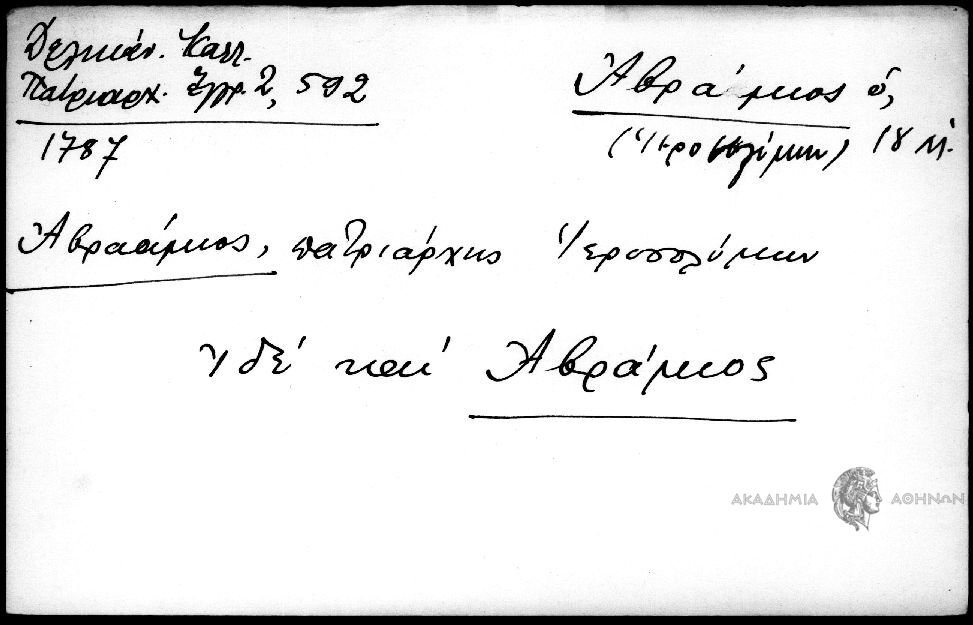 Δελικάν. Καλλ.
Πατριαρχ. Ἔγγρ. 2, 592
1787
Ἀβράμιος ὁ,
(Ἱεροσολύμων) 18 αἰ.
Ἀβραάμιος, πατριάρχης Ἱεροσολύμων
ἰδέ καί Ἀβράμιος
ΑΚΑΔΗΜΙΑ ΑΘΗΝΩΝ